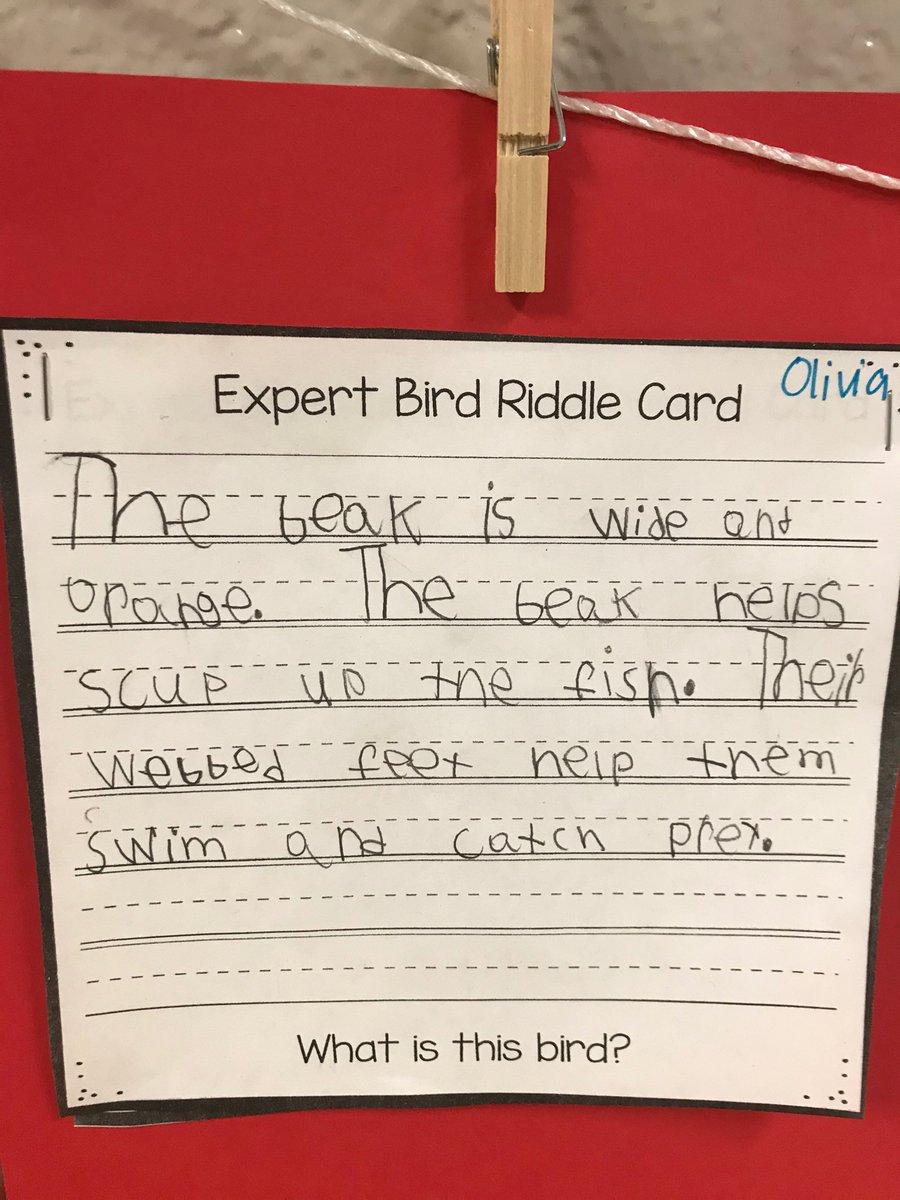 Expert Bird Riddle Card
Olivia
The beak is wide and
orange. The beak helps
scup up the fish. Their
webbed feet help them
swim and catch prey.
What is this bird?